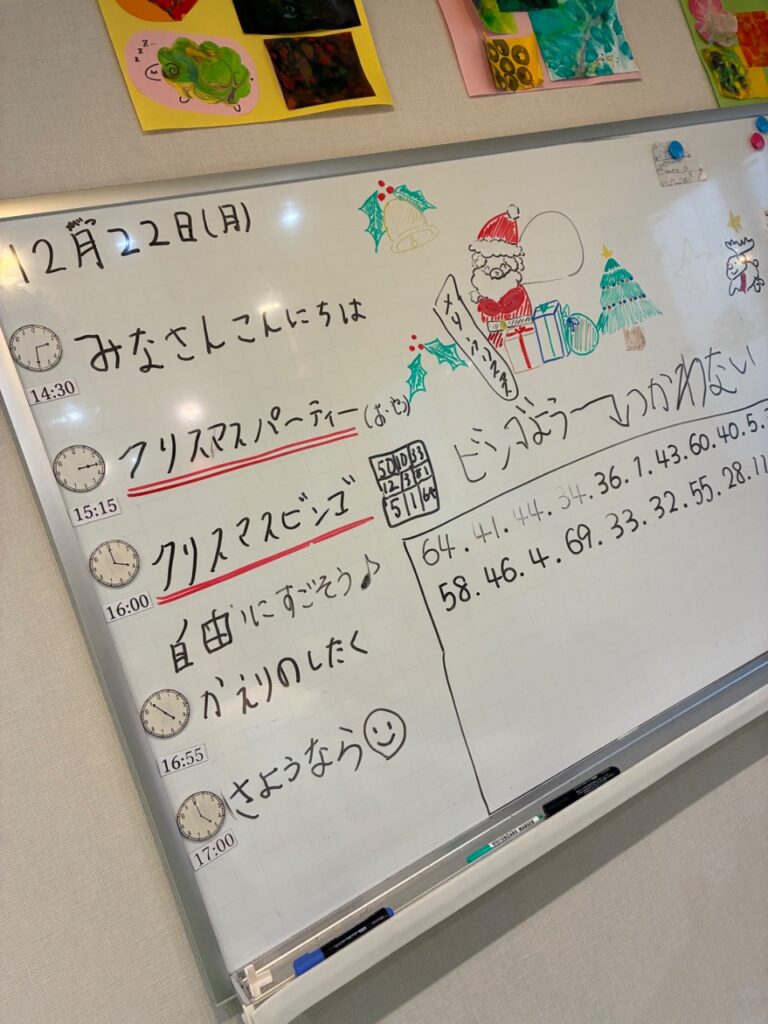 12月22日(月)
がつ
みなさんこんにちは
14:30
メリークリスマス
クリスマスパーティー
15:15
クリスマスビンゴ
50 10 33
5 1 64
16:00
64.41.44.34.36.1.43.60.40.5.3
58.46.4.69.33.32.55.28.11
自由にすごそう♪
かえりのしたく
16:55
さようなら
17:00
WHITEBOARD MARKER